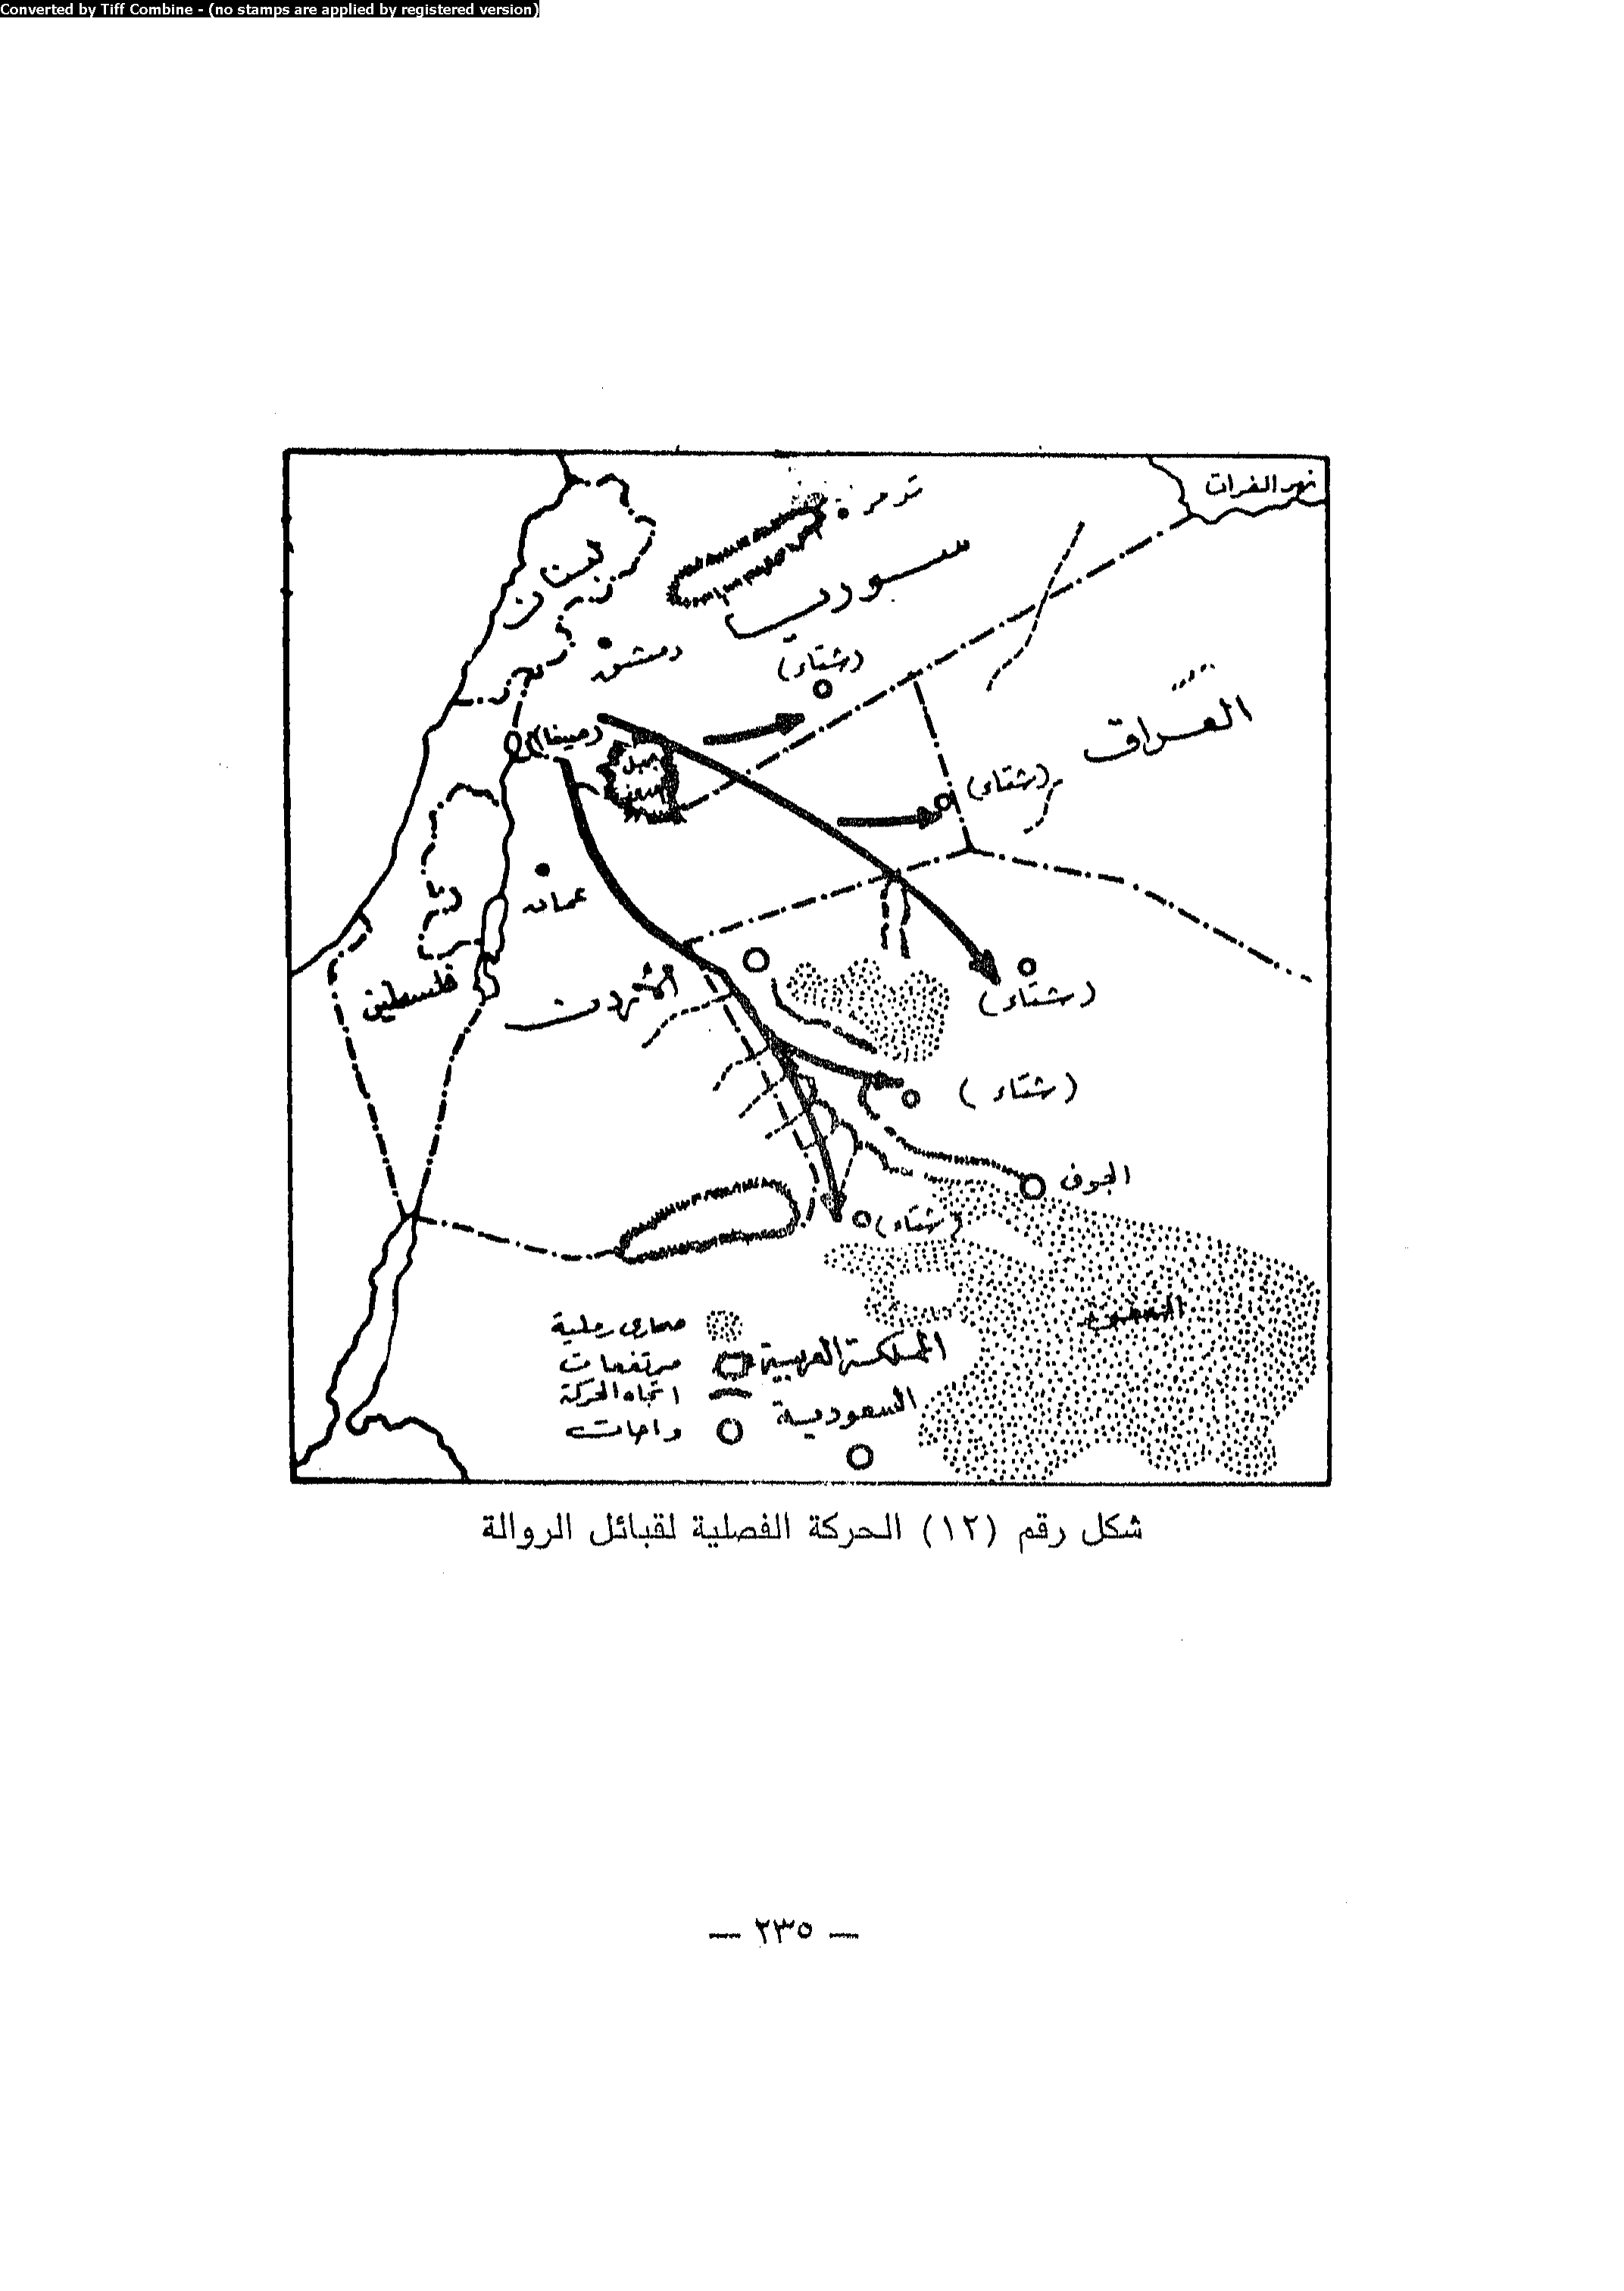 Converted by Tiff Combine - (no stamps are applied by registered version)
نهر الفرات
تدمر
سوريا
لبنان
دمشق
(شتاء)
العراق
(صيفا)
جبل
(شتاء)
عمان
فلسطين
الأردن
(شتاء)
(شتاء)
الجوف
(شتاء)
صحارى رملية
المملكة العربية
مرتفعات
اتجاه الحركة
السعودية
واحات
شكل رقم (١٢) الحركة الفصلية لقبائل الروالة
— ٢٣٥ —